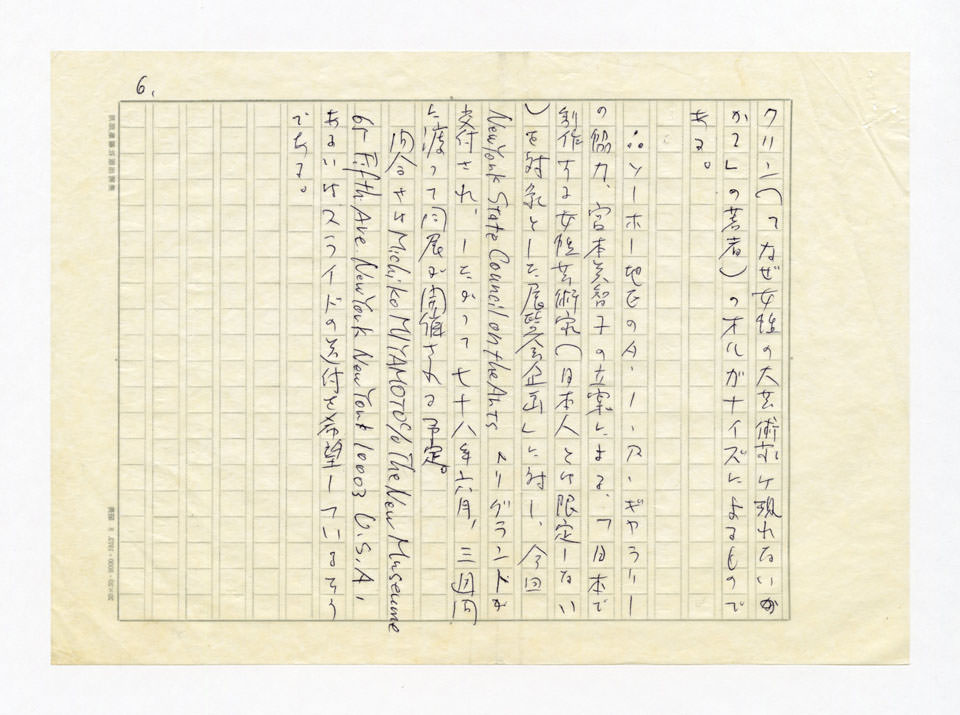 6.
クリン(「なぜ女性の大芸術家は現れないか
か？」の著者)のオルガナイズによるもので
ある。
∴ソーホー地区のA・I・R・ギャラリー
の協力、宮本美智子の立案による、「日本で
制作する女性芸術家(日本人とは限定しない
)を対象とした展覧会企画」に対し、今回
New York State Council on the Arts よりグラントが
交付され、したがって七十八年六月、三週間
に渡って同展が開催される予定。
問合せは Michiko MIYAMOTO c/o The New Museume
65 Fifth Ave. New York New York 10003 U.S.A.,
あるいはスライドの送付を希望しているそう
である。